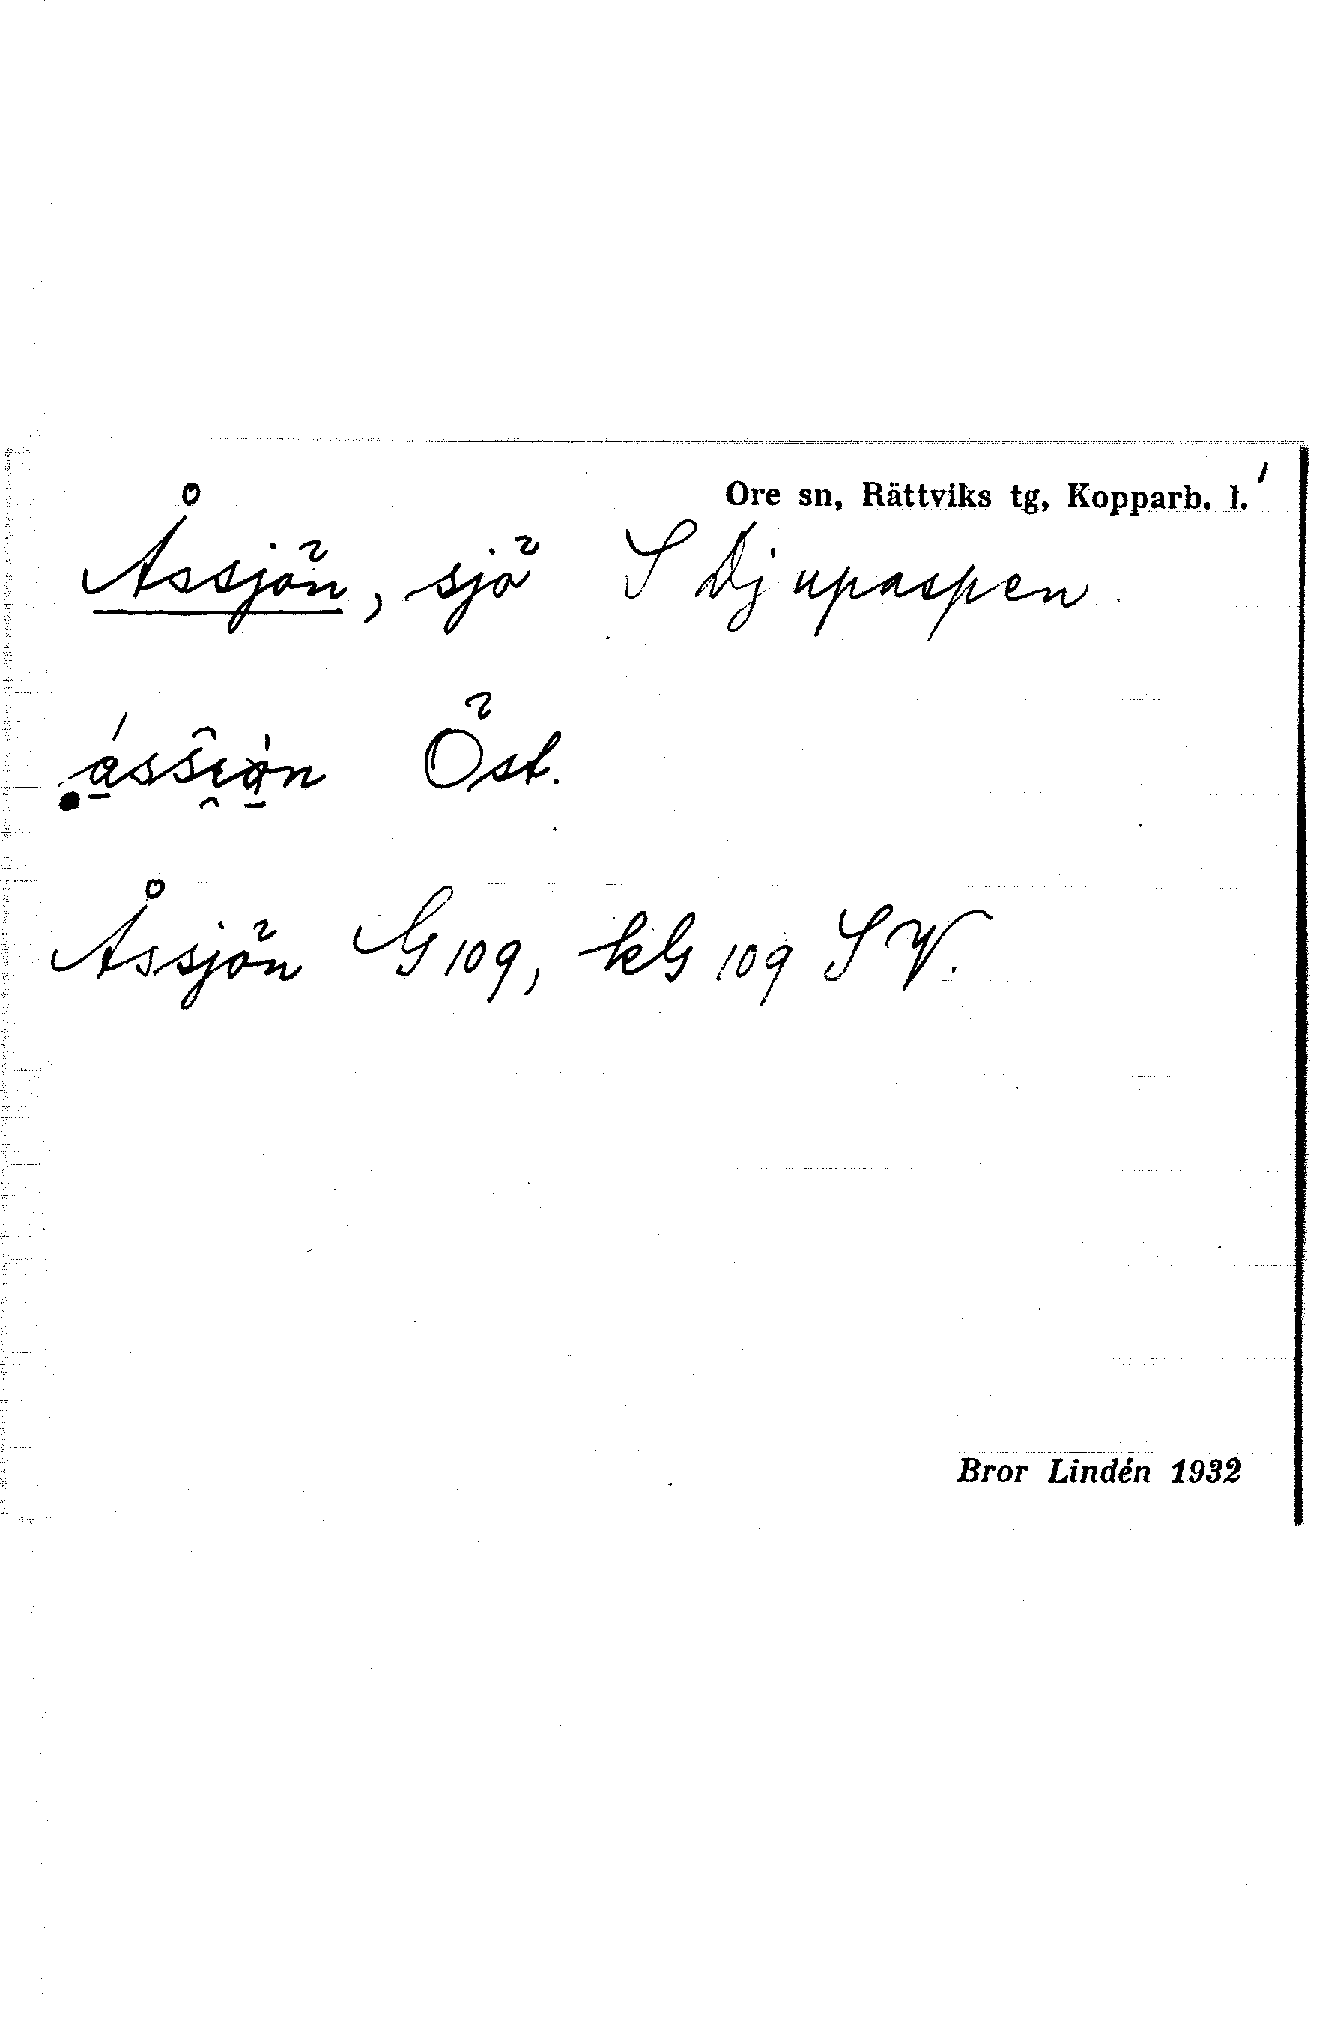 Ore sn, Rättviks tg, Kopparb. l.
Åssjön, sjö S Djupaspen
Öst.
Åssjön G 109, kG 109 SV.
Bror Lindén 1932